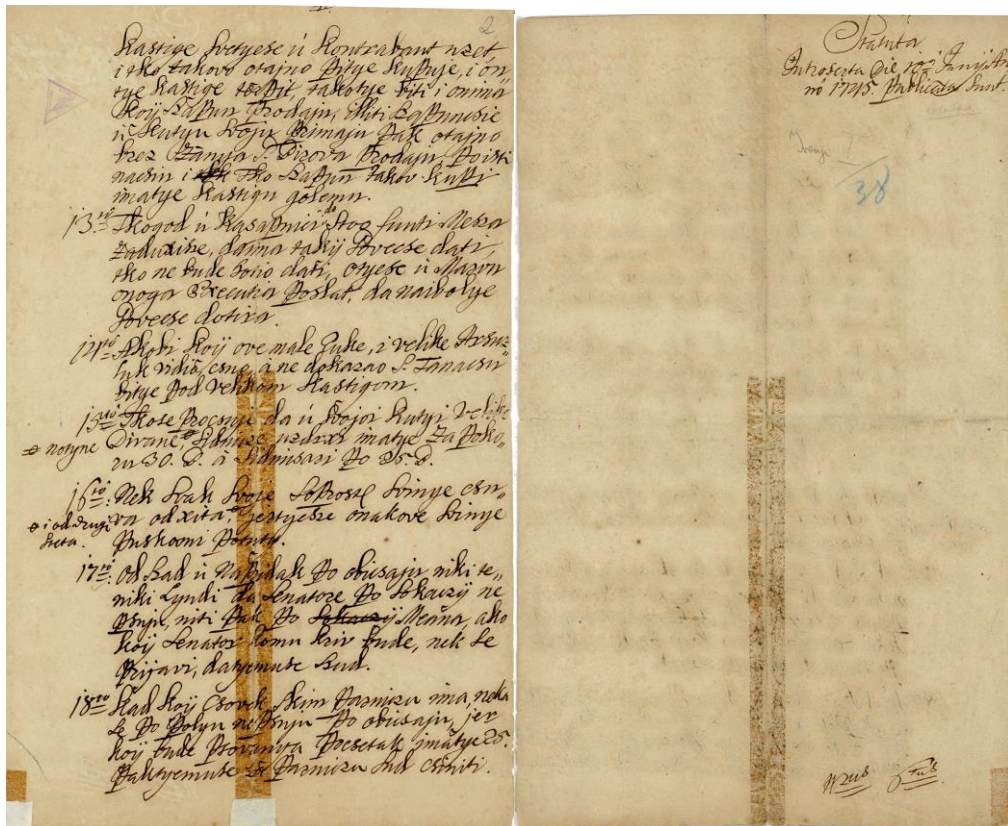 2
kastige hvetyese ú Kontrabant uzet,
i tko takovo otajno Pitye kupuje, i ón
tye kastige terpit, takotye biti i onima
koÿ Sapun Prodaju, illiti Sapundxie
ú kutyu svoju Primaju Pak otajno
brez Znanja S. Birova Prodaju, Po isti
nacsin i tko Sapun takov kupi
imatye kastigu golemu.
13to Tkogod ú kasapnici stog funti Mesza
zaduxise, daima takÿ Povecse dati,
tko ne bude botio dati, otyese ú Marvu
onoga Executia Poslat, da naibolye
Povecse dotira.
14to Akobi koÿ ove male Luke, i velike Arsuz
luk vidio, csuo, á ne dokazao S. Tanacsu
bitye Pod velikom kastigom.
15to Tkose Procsuje da ú svojoi kutyi Velike
≠ notyne Divane, Sidnike uzdrxi imatye za Poko-
ru 30. D. á Sidniksari Po 25. D.
16to: Nek svak svoje Soprost svinye csu-
≠ i od drugi va od xita, jertyesze onakove svinye
kvera. Puskomi Potuty.
17to: Od sad ú Napridak Po obicsaju niki te-
niki Lyudi da Senatore Po Sokaczÿ ne
Psuju, niti Pak Po Meana, ako
koÿ Senator komu kriv bude, nek se
Prijavi, datyemuse Sud.
18to Kad koÿ Csovek skim Parnicu ima, neka
se Po Polyu ne Psuju Po obicsaju, jer
koÿ bude Povodnva Pocsetak imatye 25.
Paktyemuse za Parnicu Sud csiniti.
Statuta
Introserta Die 10a Junÿ An
no 1745. Publicata Sunt.
38